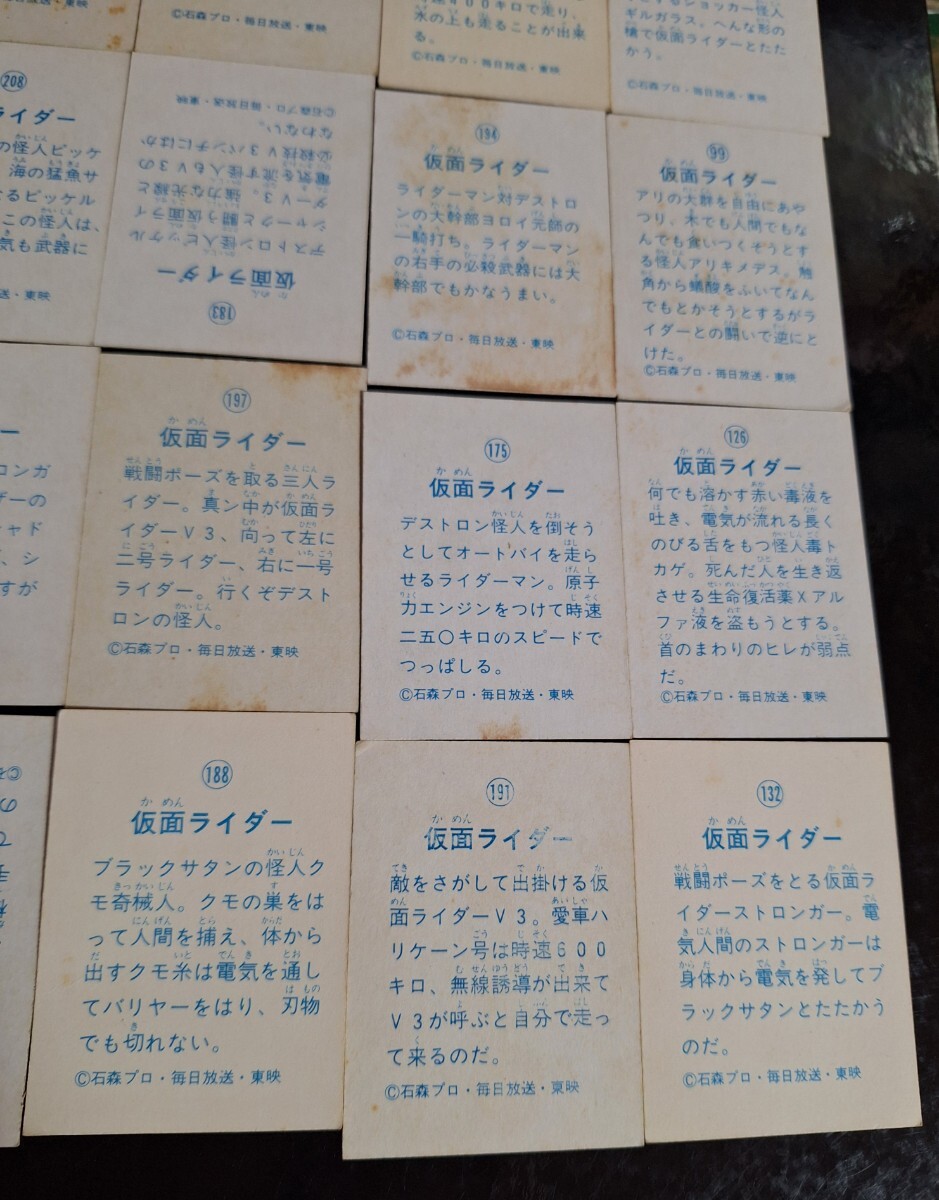 ©石森プロ・毎日放送・東映
00キロで走り、
水の上も走ることが出来
る。
©石森プロ・毎日放送・東映
するショッカー怪人
ギルガラス。へんな形の
槍で仮面ライダーとたた
かう。
©石森プロ・毎日放送・東映
208
イダー
の怪人ピッケ
海の猛魚サ
るピッケル
この怪人は、
気も武器に
・映東
183
仮面ライダー
デストロン怪人ピッケル
シャークと闘う仮面ライ
ダーV3。強力な光線と
電気を流す怪人もV3の
必殺技V3パンチにはか
なわない。
©石森プロ・毎日放送・東映
194
仮面ライダー
ライダーマン対デストロ
ンの大幹部ヨロイ元師の
一騎打ち。ライダーマン
の右手の必殺武器には大
幹部でもかなうまい。
©石森プロ・毎日放送・東映
99
仮面ライダー
アリの大群を自由にあや
つり、木でも人間でもな
んでも食いつくそうとす
る怪人アリキメデス。触
角から蟻酸をふいてなん
でもとかそうとするがラ
イダーとの闘いで逆にと
けた。
©石森プロ・毎日放送・東映
ー
ロンガ
ザーの
ャドの
、シ
すが
197
仮面ライダー
戦闘ポーズを取る三人ラ
イダー。真ン中が仮面ラ
イダーV3、向って左に
二号ライダー、右に一号
ライダー。行くぞデスト
ロンの怪人。
©石森プロ・毎日放送・東映
175
仮面ライダー
デストロン怪人を倒そう
としてオートバイを走ら
せるライダーマン。原子
力エンジンをつけて時速
二五〇キロのスピードで
つっぱしる。
©石森プロ・毎日放送・東映
126
仮面ライダー
何でも溶かす赤い毒液を
吐き、電気が流れる長く
のびる舌をもつ怪人毒ト
カゲ。死んだ人を生き返
させる生命復活薬Xアル
ファ液を盗もうとする。
首のまわりのヒレが弱点
だ。
©石森プロ・毎日放送・東映
188
仮面ライダー
ブラックサタンの怪人ク
モ奇械人。クモの巣をは
って人間を捕え、体から
出すクモ糸は電気を通し
てバリヤーをはり、刃物
でも切れない。
©石森プロ・毎日放送・東映
191
仮面ライダー
敵をさがして出掛ける仮
面ライダーV3。愛車ハ
リケーン号は時速600
キロ、無線誘導が出来て
V3が呼ぶと自分で走っ
て来るのだ。
©石森プロ・毎日放送・東映
132
仮面ライダー
戦闘ポーズをとる仮面ラ
イダーストロンガー。電
気人間のストロンガーは
身体から電気を発してブ
ラックサタンとたたかう
のだ。
©石森プロ・毎日放送・東映